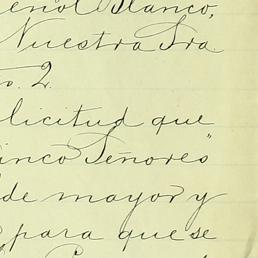 eñor Blanco,
Nuestra Sra.
o. 2.
licitud que
inco Señores"
de mayor y
para que se